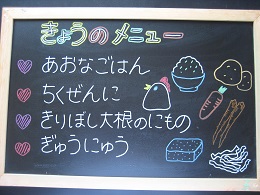 きょうのメニュー
あおなごはん
ちくぜんに
きりぼし大根のにもの
ぎゅうにゅう